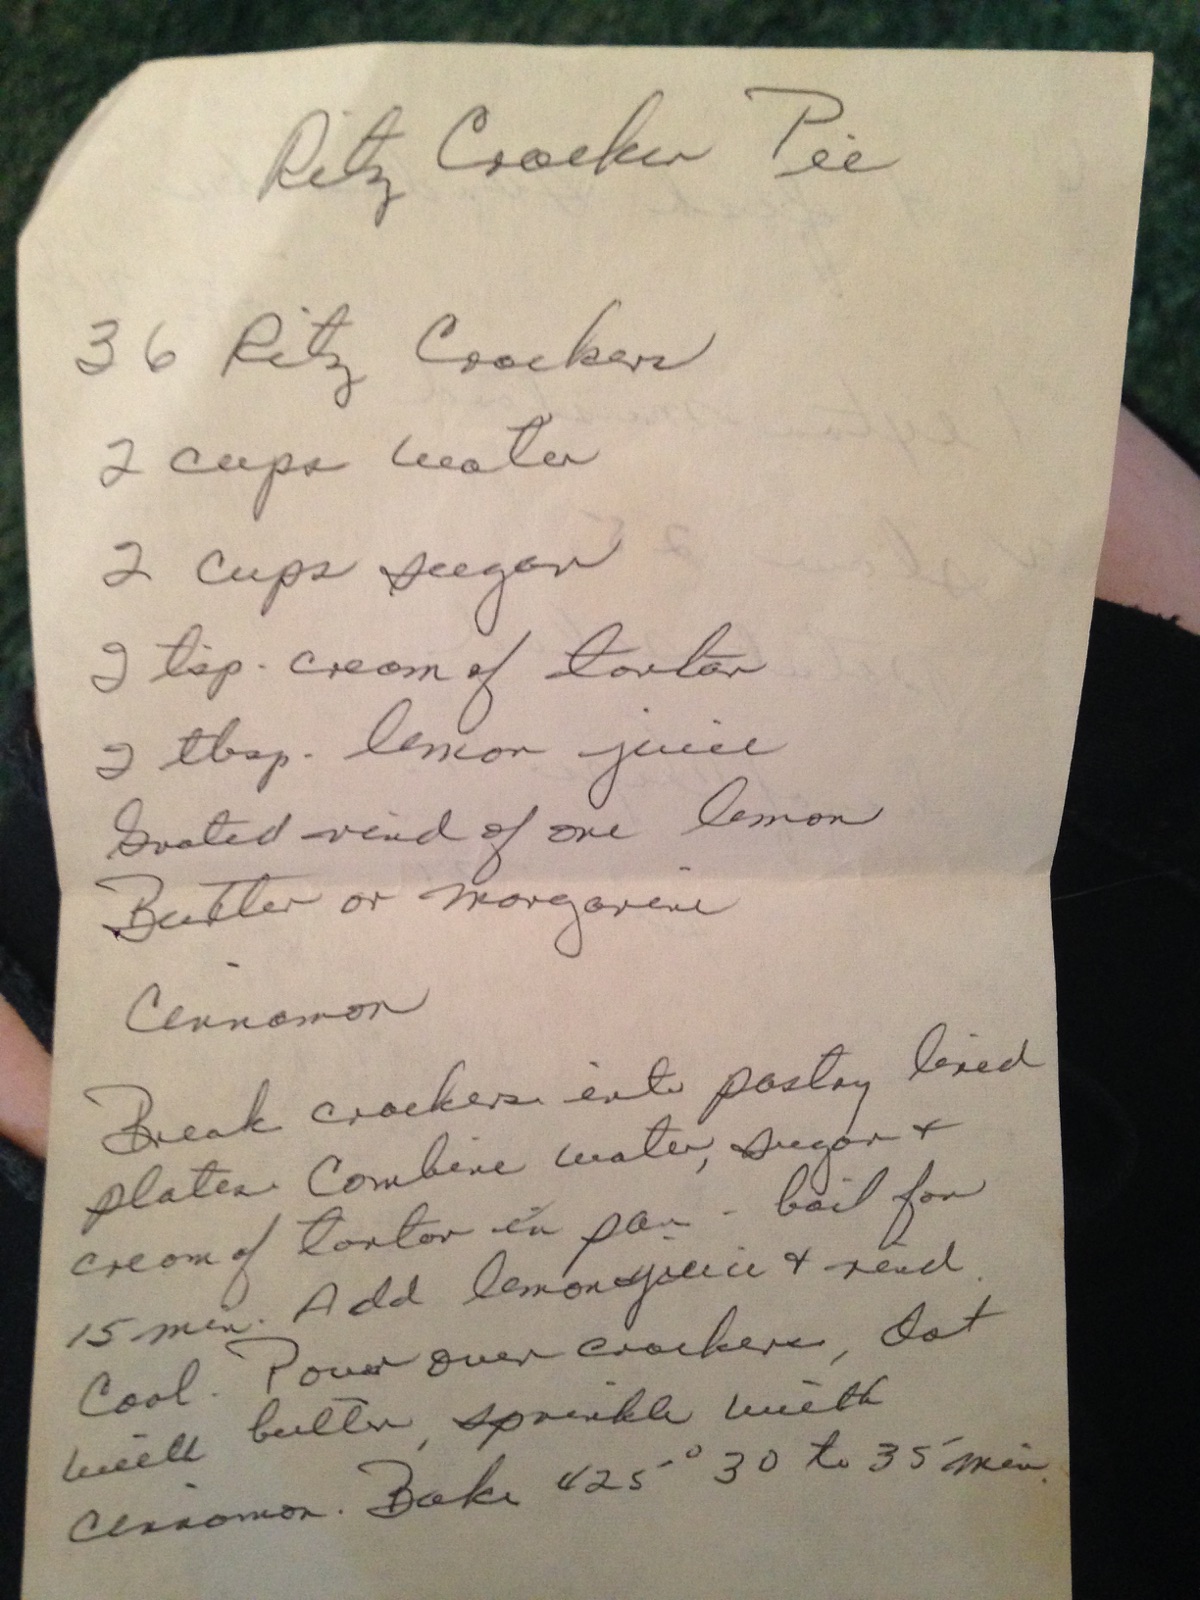 Ritz Cracker Pie
36 Ritz Crackers
2 cups water
2 cups sugar
2 tsp. cream of tartar
2 tbsp. lemon juice
Grated rind of one lemon
Butter or margarine
Cinnamon
Break crackers into pastry lined
plates. Combine water, sugar &
cream of tartar in pan - boil for
15 min. Add lemon juice & rind.
Cool. Pour over crackers, dot
with butter, sprinkle with
cinnamon. Bake 425° 30 to 35 min.